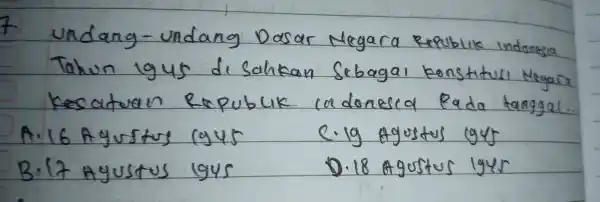 7 Undang-undang Dasar Negara Republik indonesia
Tahun 1945 di Sahkan Sebagai konstitusi Negara
Kesatuan Republik indonesia Pada tanggal..
A. 16 Agustus 1945 C. 19 Agustus 1945
B. 17 Agustus 1945 D. 18 Agustus 1945